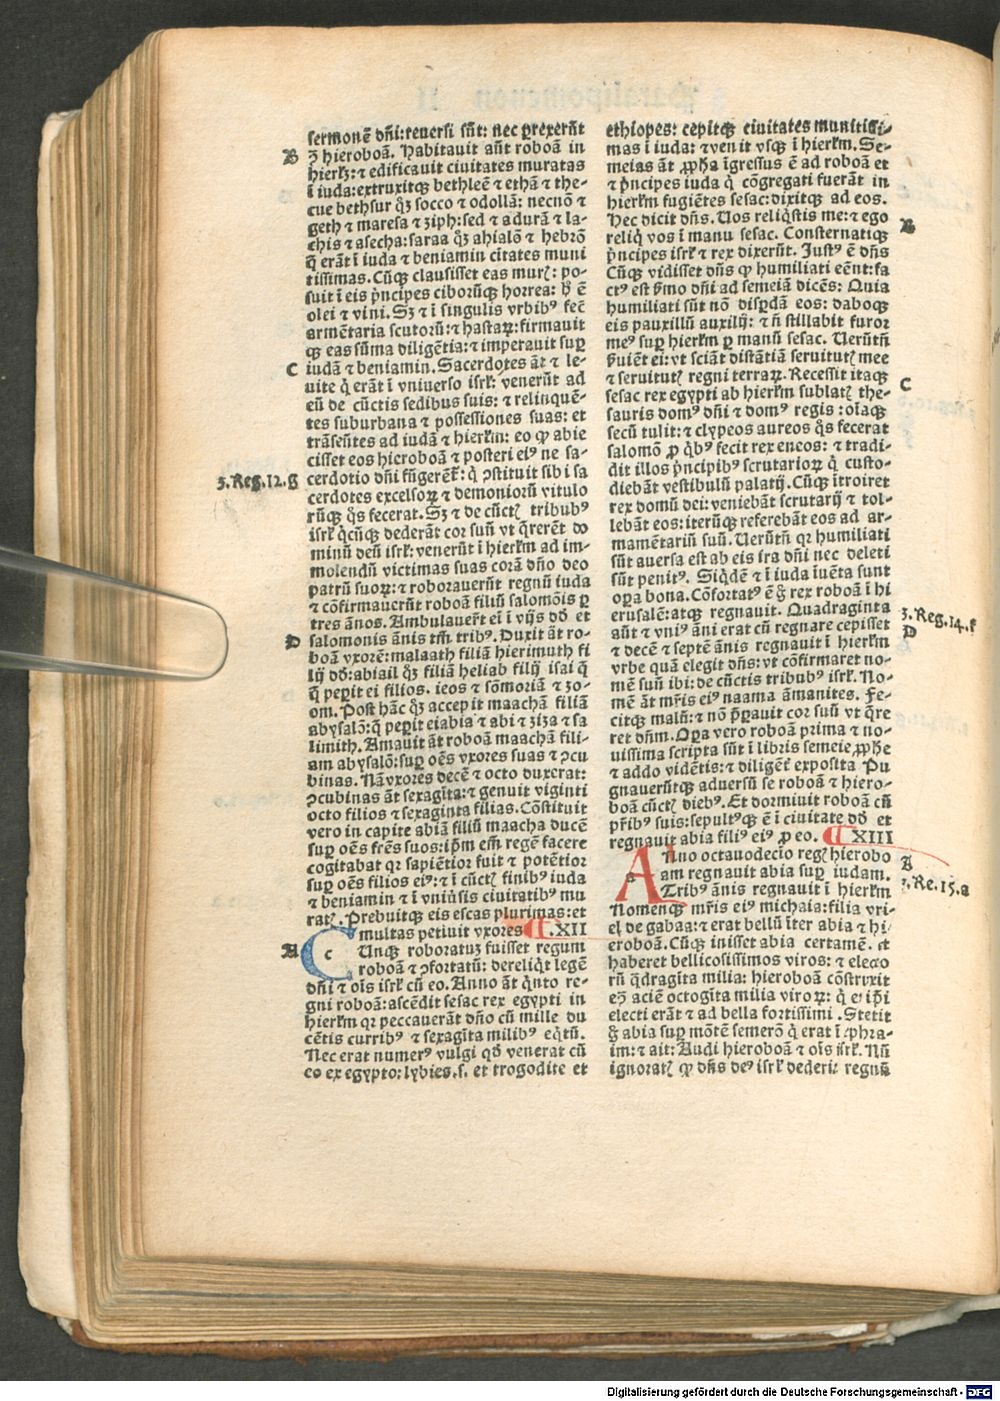 sermonē dn̄i: reuersi sūt: nec ꝑrexerūt
B
ꝫ hieroboā. Habitauit aūt roboā in
hierłꝫ: ⁊ edificauit ciuitates muratas
ī iuda: extruxitqꝫ bethleē ⁊ ethā ⁊ the-
cue bethsur qͦꝫ socco ⁊ odollā: necnō ⁊
geth ⁊ maresa ⁊ ziph: sed ⁊ adurā ⁊ la-
chis ⁊ asecha: saraa qͦꝫ ahialō ⁊ hebrō
q̄ erāt ī iuda ⁊ beniamin citates muni
tissimas. Cūqꝫ clausisset eas murꝭ: po-
suit ī eis pͥncipes ciborūqꝫ horrea: hͦ ē
olei ⁊ vini. Sꝫ ⁊ ī singulis vrbibꝰ fec̄
armētaria scutorū: ⁊ hastaꝝ: firmauit
qꝫ eas sūma diligētia: ⁊ imperauit suꝑ
C
iudā ⁊ beniamin. Sacerdotes āt ⁊ le-
uite qͥ erāt ī vniuerso isrł: venerūt ad
eū de cūctis sedibus suis: ⁊ relinquē-
tes suburbana ⁊ possessiones suas: et
trāseūtes ad iudā ⁊ hierłm: eo ꝙ abie
cisset eos hieroboā ⁊ posteri eiꝰ ne sa-
3. Reg. 12. g
cerdotio dn̄i fūgerēt̄: qͥ ꝯstituit sibi sa
cerdotes excelsoꝝ ⁊ demoniorū vitulo
rūqꝫ qͦs fecerat. Sꝫ ⁊ de cūctꝭ tribubꝰ
isrł qͥcūqꝫ dederāt cor suū vt q̄rerēt do
minū deū isrł: venerūt ī hierłm ad im-
molendū victimas suas corā dn̄o deo
patrū suoꝝ: ⁊ roborauerūt regnū iuda
⁊ cōfirmauerūt roboā filiū salomōis ꝑ
tres ānos. Ambulauer̄t ei ī vijs dd̄ et
D
salomonis ānis tm̄ tribꝰ. Duxit āt ro-
boā vxorē: malaath filiā hierimuth fi
lij dd̄: abiail qͦꝫ filiā heliab filij isai q̄
q̄ peꝑit ei filios. ieos ⁊ sōmoriā ⁊ zo-
om. Post hāc qͦꝫ accepit maachā filiā
abysalō: q̄ peꝑit ei abia ⁊ abi ⁊ ziza ⁊ sa
limith. Amauit āt roboā maachā fili-
am abysalō: suꝑ oēs vxores suas ⁊ ꝯcu
binas. Nā vxores decē ⁊ octo duxerat:
ꝯcubinas āt sexagīta: ⁊ genuit viginti
octo filios ⁊ sexaginta filias. Cōstituit
vero in capite abiā filiū maacha ducē
suꝑ oēs frēs suos: ip̄m em̄ regē facere
cogitabat qꝛ sapiētior fuit ⁊ potētior
suꝑ oēs filios eiꝰ: ⁊ ī cūctꝭ finibꝰ iuda
⁊ beniamin ⁊ ī vniūsis ciuitatibꝰ mu
ratꝭ. Prebuitqꝫ eis escas plurimas: et
multas petiuit vxores ¶.XII
A
C c Unqꝫ roboratuꝫ fuisset regnum
roboā ⁊ ꝯfortatū: dereliqͥt legē
dn̄i ⁊ oīs isrł cū eo. Anno āt qͥnto re-
gni roboā: ascēdit sesac rex egypti in
hierłm qꝛ peccauerāt dn̄o cū mille du
cētis curribꝰ ⁊ sexagīta milibꝰ eqͥtū.
Nec erat numerꝰ vulgi qd̄ venerat cū
eo ex egypto: lybies .s. et trogodite et
ethiopes: cepitqꝫ ciuitates munitissi-
mas ī iuda: ⁊ venit vsqꝫ ī hierłm. Se-
meias āt ꝓpħa īgressus ē ad roboā et
⁊ pͥncipes iuda qͥ cōgregati fuerāt in
hierłm fugiētes sesac: dixitqꝫ ad eos.
Hec dicit dn̄s. Uos reliqͥstis me: ⁊ ego
B
reliqͥ vos ī manu sesac. Consternatiqꝫ
pͥncipes isrł ⁊ rex dixerūt. Justꝰ ē dn̄s
Cūqꝫ vidisset dn̄s ꝙ humiliati eēnt: fa
ctꝰ est ẜmo dn̄i ad semeiā dicēs: Quia
humiliati sūt nō disꝑdā eos: daboqꝫ
eis pauxillū auxilij: ⁊ n̄ stillabit furor
meꝰ suꝑ hierłm ꝑ manū sesac. Uerūtn̄
ẜuiēt ei: vt sciāt distātiā seruitutꝭ mee
⁊ seruitutꝭ regni terraꝝ. Recessit itaqꝫ
C
sesac rex egypti ab hierłm sublatꝭ the-
sauris domꝰ dn̄i ⁊ domꝰ regis: oīaqꝫ
secū tulit: ⁊ clypeos aureos qͦs fecerat
salomō ꝓ qͥbꝰ fecit rex eneos: ⁊ tradi-
dit illos pͥncipibꝰ scrutarioꝝ qͥ custo-
diebāt vestibulū palatij. Cūqꝫ ītroiret
rex domū dei: veniebāt scrutarij ⁊ tol-
lebāt eos: iterūqꝫ referebāt eos ad ar-
mamētariū suū. Uerūtn̄ qꝛ humiliati
sūt auersa est ab eis ira dn̄i nec deleti
sūt penitꝰ. Siqͥdē ⁊ ī iuda īuēta sunt
oꝑa bona. Cōfortatꝰ ē gͦ rex roboā ī hi
erusalē: atqꝫ regnauit. Quadraginta
3. Reg. 14. f
D
aūt ⁊ vniꝰ āni erat cū regnare cepisset
⁊ decē ⁊ septē ānis regnauit ī hierłm
vrbe quā elegit dn̄s: vt cōfirmaret no-
mē suū ibi: de cūctis tribubꝰ isrł. No-
mē āt mr̄is eiꝰ naama āmanites. Fe-
citqꝫ malū: ⁊ nō p̄ꝑauit cor suū vt q̄re
ret dn̄m. Oꝑa vero roboā prima ⁊ no-
uissima scripta sūt ī libris semeie ꝓpħe
⁊ addo vidētis: ⁊ diligēt̄ exposita Pu
gnauerūtqꝫ aduersū se roboā ⁊ hiero-
boā cūctꝭ diebꝰ. Et dormiuit roboā cū
pr̄ibꝰ suis: sepultꝰqꝫ ē ī ciuitate dd̄ et
regnauit abia filiꝰ eiꝰ ꝓ eo. ¶XIII
A a Nno octauodecio regꝭ hierobo
A
am regnauit abia suꝑ iudam.
3. Re. 15. a
Tribꝰ ānis regnauit ī hierłm
Nomenqꝫ mr̄is eiꝰ michaia: filia vri-
el de gabaa: ⁊ erat bellū īter abia ⁊ hi
eroboā. Cūqꝫ inisset abia certamē. et
haberet bellicosissimos viros: ⁊ electo
rū q̄dragīta milia: hieroboā cōstruxit
eꝯ aciē octogīta milia viroꝝ: qͥ ⁊ ip̄i
electi erāt ⁊ ad bella fortissimi. Stetit
gͦ abia suꝑ mōtē semerō qͥ erat ī ephra-
im: ⁊ ait: Audi hieroboā ⁊ oīs isrł. Nū
ignoratꝭ ꝙ dn̄s deꝰ isrł dederit regnū
Digitalisierung gefördert durch die Deutsche Forschungsgemeinschaft - DFG